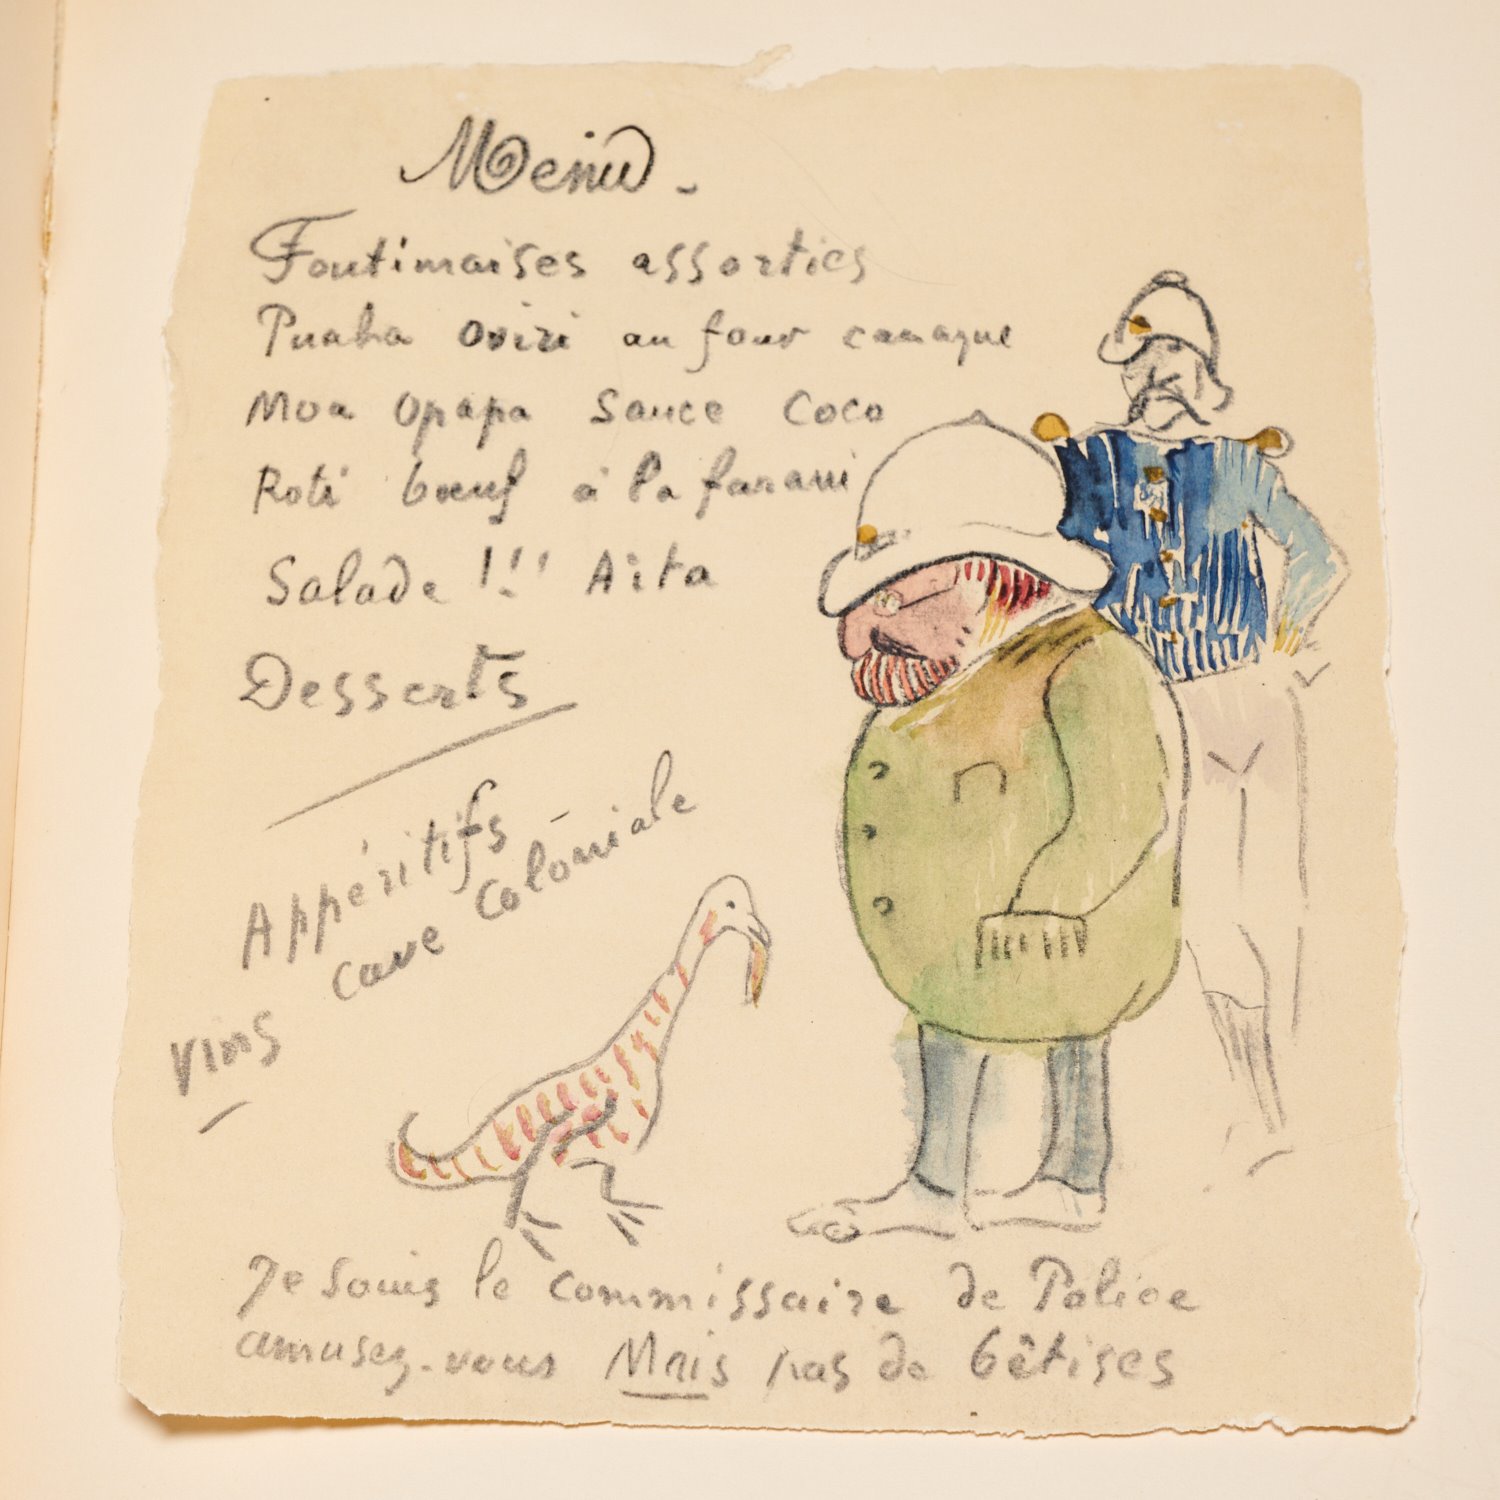 Menu -
Foutimaises assorties
Puaha oviri au four canaque
Moa Opapa Sauce Coco
Roti bœuf à la farani
Salade !!! Aita
Desserts
Appéritifs
cave coloniale
vins
Je souis le commissaire de Police
amusez-vous Mais pas de bêtises